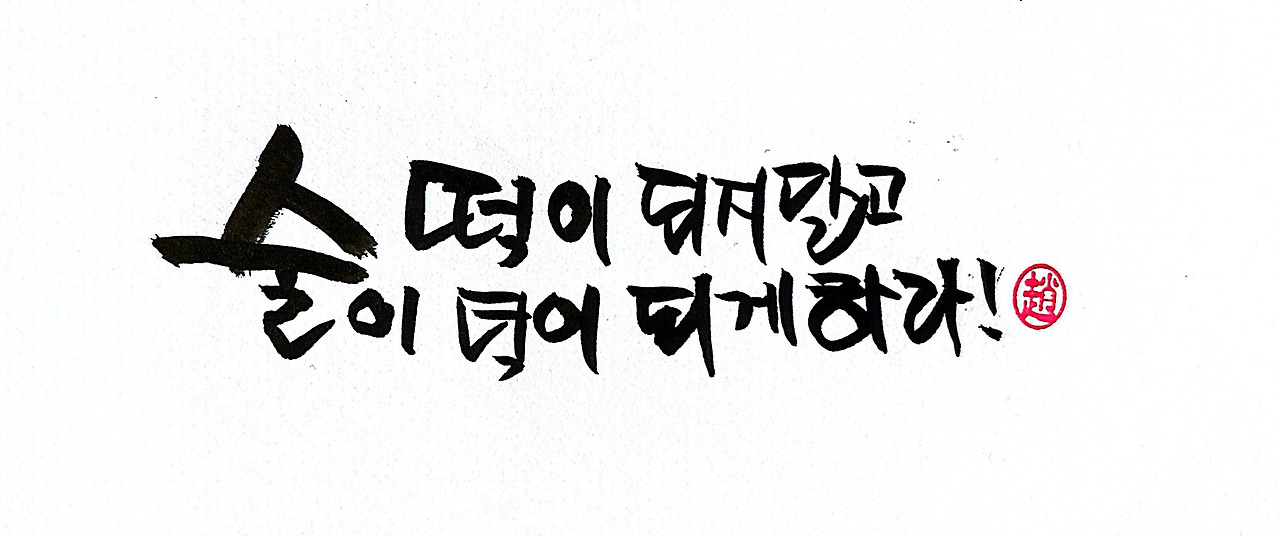 떡이 되지말고
술이 덕이 되게하라!
趙